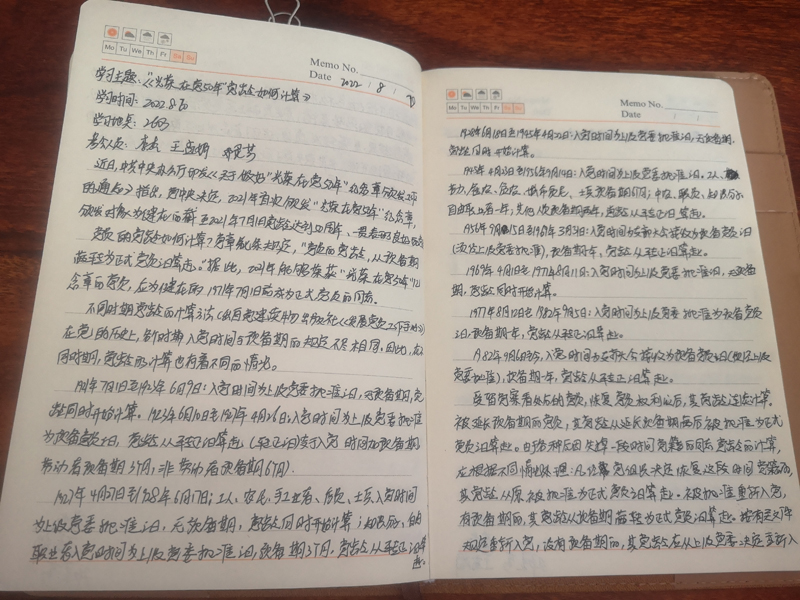 Mo Tu We Th Fr Sa Su
Memo No.
Date 2022 / 8 /
学习主题:《"光荣在党50年"党龄如何计算》
学习时间: 2022.8.
学习地点: 2603
参会人员:
近日,中共中央办公厅印发《关于做好"光荣在党50年"纪念章颁发工作
的通知》指出,党中央决定,2021年首次颁发"光荣在党50年"纪念章,
颁发对象为健在的截至2021年7月1日党龄达到50周年、一贯表现良好的党员
党员的党龄如何计算?党章规定,"党员的党龄,从预备期
满转为正式党员之日算起。"据此,2021年能够获"光荣在党50年"纪
念章的党员,应为健在的1971年7月1日前成为正式党员的同志。
不同时期党龄的计算方法(党建读物出版社《发展党员工作手册》)
在党的历史上,各时期入党时间与预备期的规定不尽相同。因此,在不
同时期,党龄的计算也有着不同的情况。
1921年7月1日至1923年6月9日:入党时间为上级党委批准之日,无预备期,党
龄同时开始计算。1923年6月10日至1927年4月26日:入党时间为上级党委批准
为预备党员之日,党龄从转正之日算起(转正之日等于入党时间加预备期
劳动者预备期3个月,非劳动者预备期6个月)。
1927年4月27日到1928年6月17日:工人、农民、手工业者、店员、士兵入党时间
为上级党委批准之日,无预备期,党龄同时开始计算;知识分子、自由
职业者入党时间为上级党委批准之日,预备期3个月,党龄从转正之日算
起。
Mo Tu We Th Fr Sa Su
Memo No.
Date / /
1928年6月18日至1945年4月22日:入党时间为上级党委批准之日,无预备期,
党龄同时开始计算。
1945年4月23日到1956年9月14日:入党时间为上级党委批准之日。工人、
苦力、雇农、贫农、城市贫民、士兵预备期6个月;中农、职员、知识分子
自由职业者一年;其他人预备期两年,党龄从转正之日算起。
1956年9月15日到1969年3月31日:入党时间为支部大会接收为预备党员之日
(须经上级党委批准),预备期一年,党龄从转正之日算起。
1969年4月1日至1977年8月11日:入党时间为上级党委批准之日,无预备
期,党龄同时开始计算。
1977年8月12日至1982年9月5日:入党时间为上级党委批准为预备党员
之日,预备期一年,党龄从转正之日算起。
1982年9月6日至今,入党时间为支部大会接收为预备党员之日(须经上级
党委批准),预备期一年,党龄从转正之日算起。
受留党察看处分的党员,恢复党员权利后,其党龄连续计算。
被延长预备期的党员,其党龄从延长预备期满后被批准为正式
党员之日算起。由于各种原因失掉一段时间党籍的同志党龄的计算,
应根据不同情况处理:凡经党组织决定恢复这段时间党籍的,
其党龄从原被批准为正式党员之日算起。被批准重新入党,
有预备期的,其党龄从预备期满转为正式党员之日算起。按有关文件
规定重新入党,没有预备期的,其党龄应从上级党委决定重新入